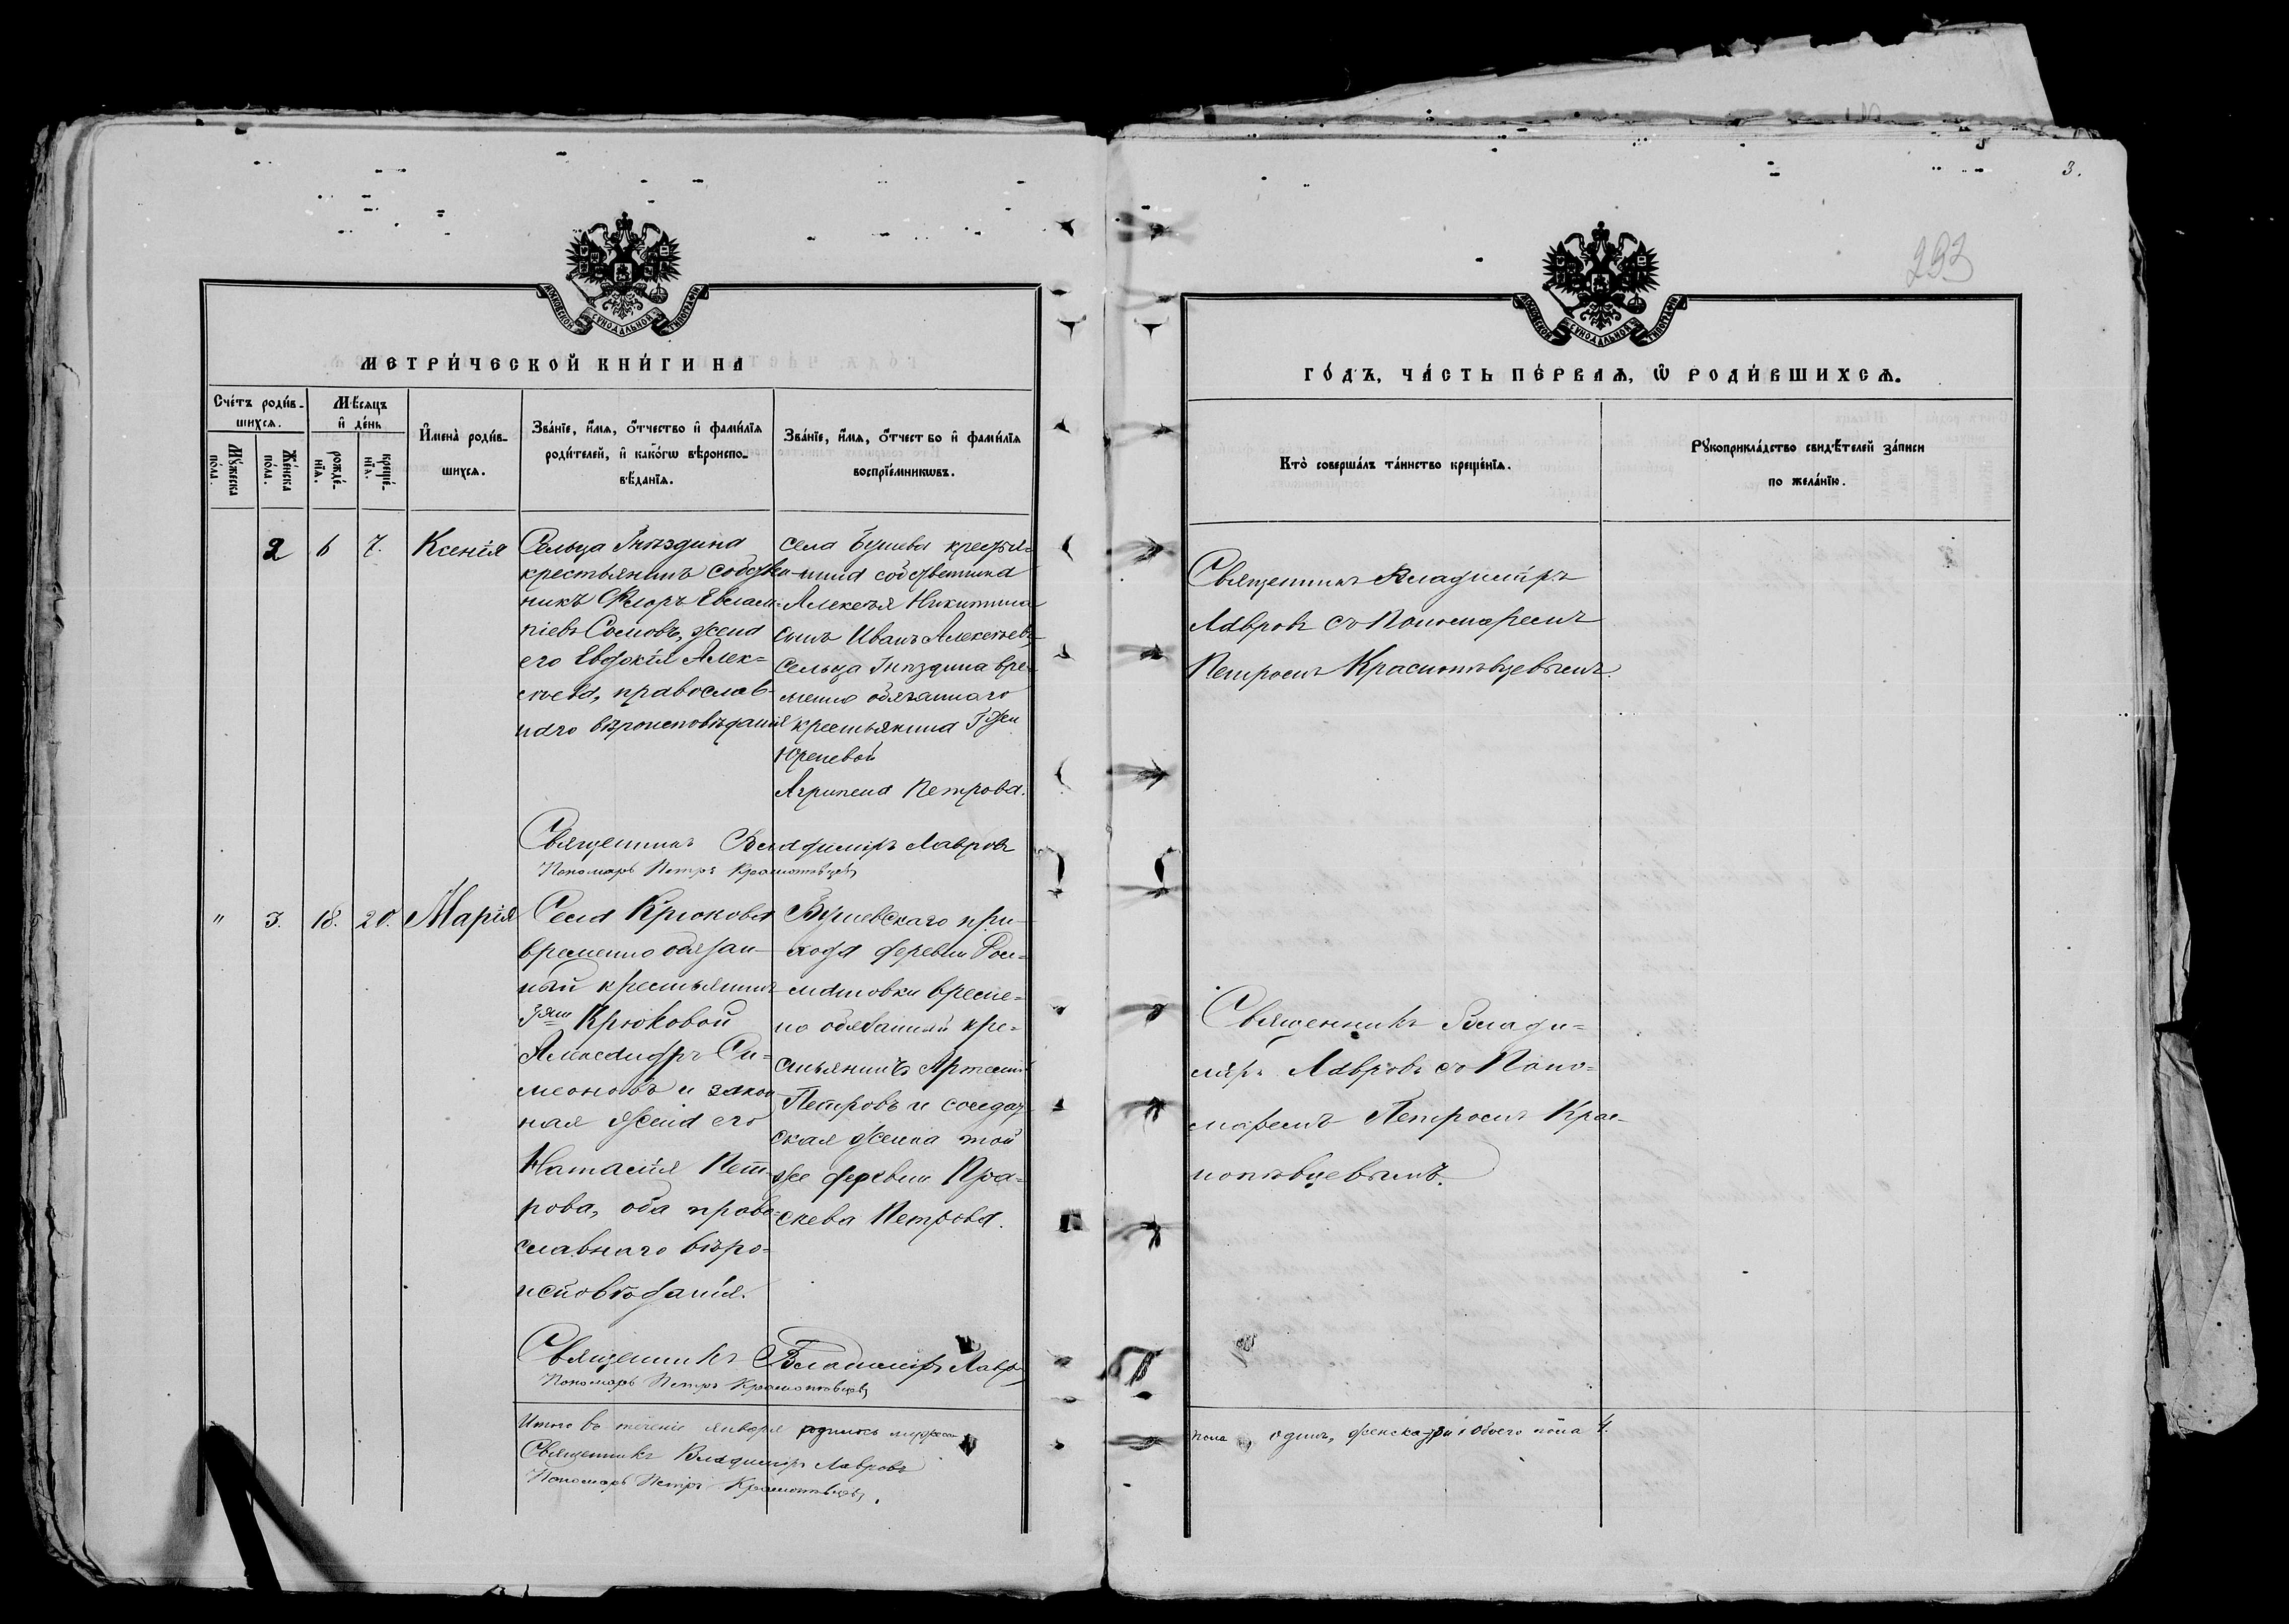 3.
293
МОСКОВСКОЙ СУНОДАЛЬНОЙ ТИПОГРАФІИ
МЕТРИ́ЧЕСКОЙ КНИ́ГИ НА
Сче́тъ роди́в-
шихся.
Мѣ́сяцъ
и҆ де́нь
Мꙋ́жеска
по́ла.
Же́нска
по́ла.
рожде́-
нїѧ.
креще́-
нїѧ.
И҆мена̀ роди́в-
шихсѧ.
Зва́нїе, и҆́мѧ, ѻ҆́тчество и҆ фами́лїѧ
роди́телей, и҆ како́гѡ вѣроиспо-
вѣ́данїѧ.
Зва́нїе, и҆́мѧ, ѻ҆́тчество и҆ фами́лїѧ
воспрїе́мникѡвъ.
2
6
7.
Ксенія
Сельца Гнѣздина
крестьянинъ собствен-
никъ Флоръ Евлам-
піевъ Сомовъ, жена
его Евдокія Алек-
сѣева, православ-
наго вѣроисповѣданія
села Бушева крестья-
нина собственника
Алексѣя Никитина
сынъ Иванъ Алексѣевъ,
Сельца Гнѣздина вре-
менно обязаннаго
крестьянина Гжи
Юреневой
Агрипена Петрова.
Священникъ Владиміръ Лавровъ
Пономарь Петръ Краснопѣвцевъ
"
3.
18.
20.
Марія
Села Крюкова
временно обязан-
ный крестьянинъ
Крюковой
Александръ Си-
меоновъ и закон-
ная жена его
Наталія Пет-
рова, оба право-
славнаго вѣро-
исповѣданія.
Бушевскаго при-
хода деревни
временно
но обязанный кре-
стьянинъ Артемій
Петровъ и солдат-
ская женка той
же деревни Пра-
скева Петрова.
Священникъ Владиміръ Лавровъ
Пономарь Петръ Краснопѣвцевъ
Итого въ теченіе января родилось мужеска
Священникъ Владиміръ Лавровъ
Пономарь Петръ Краснопѣвцевъ.
МОСКОВСКОЙ СУНОДАЛЬНОЙ ТИПОГРАФІИ
ГО́ДЪ, ЧА́СТЬ ПЕ́РВАѦ, Ѽ РОДИ́ВШИХСѦ.
Кто̀ соверша́лъ та́инство креще́нїѧ.
Рꙋкоприкла́дство свидѣ́телей за́писи
по жела́нїю.
Священникъ Владиміръ
Лавровъ съ Пономаремъ
Петромъ Краснопѣвцевымъ.
Священникъ Влади-
міръ Лавровъ со Поно-
маремъ Петромъ Крас-
нопѣвцевымъ.
пола одинъ, женска три, обоего пола 4.